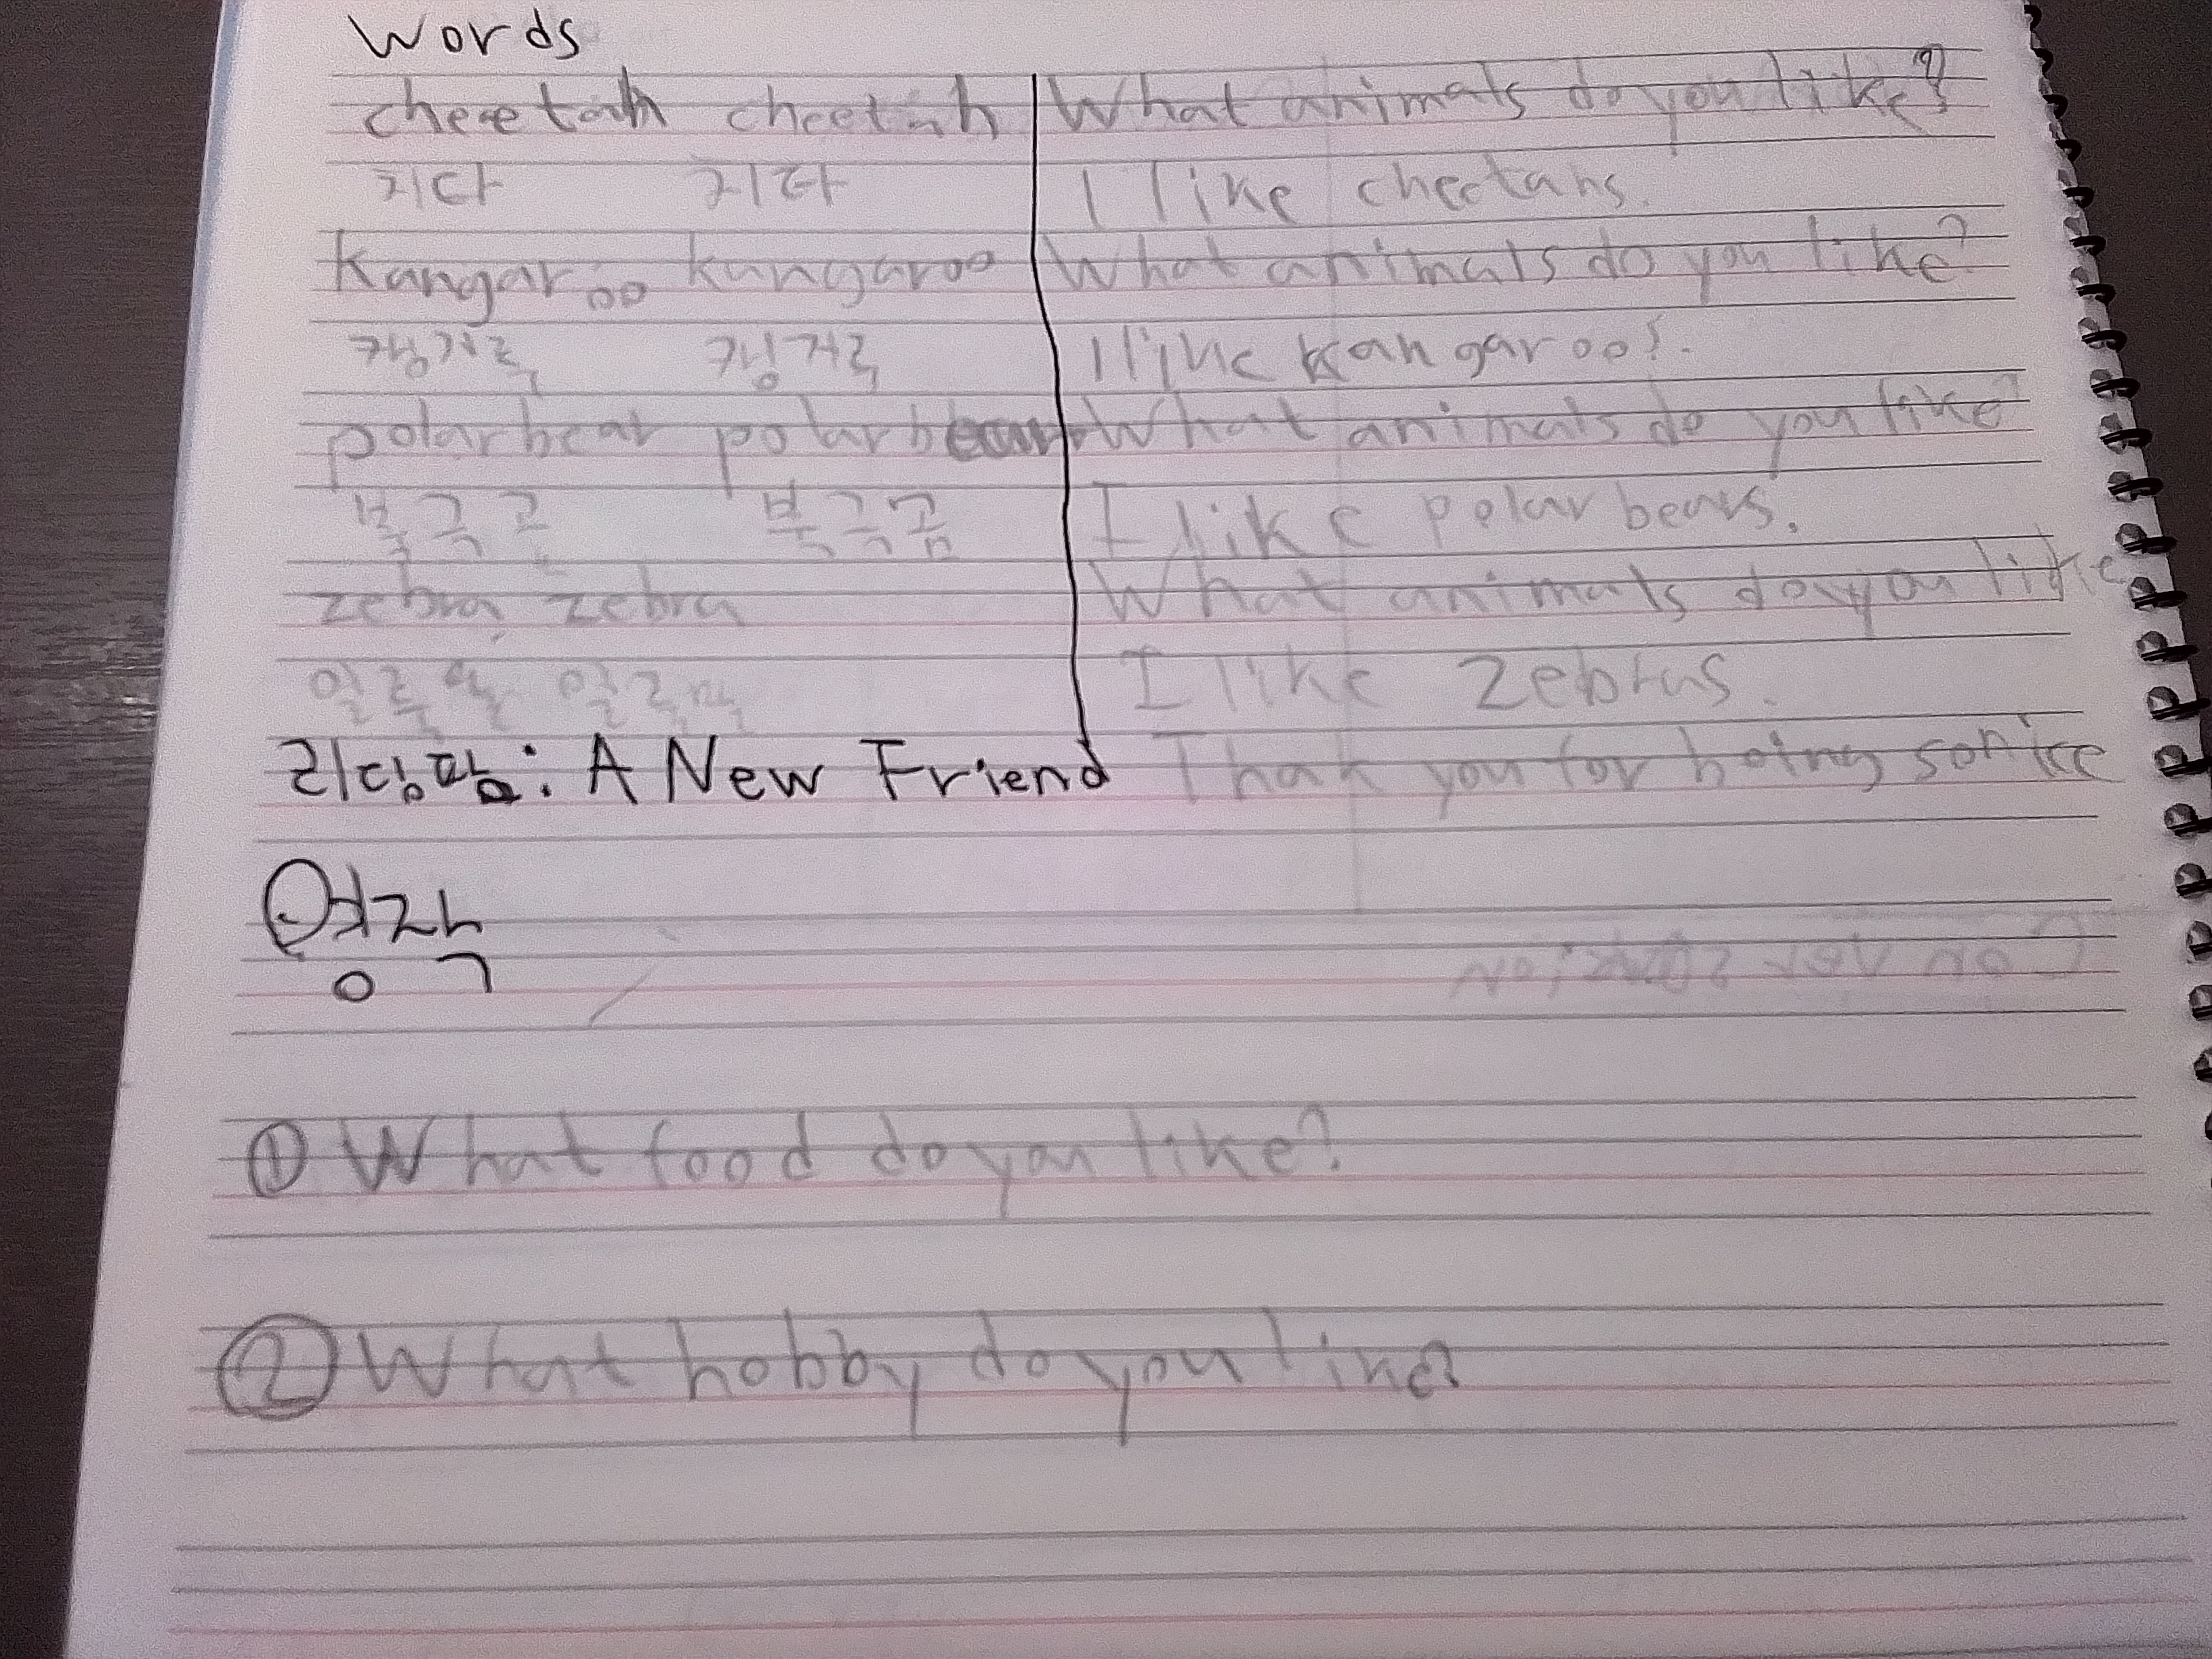 Words
cheetah cheetah What animals do you like?
치타 치타 I like cheetahs.
Kangaroo kangaroo What animals do you like?
캥거루 캥거루 I like kangaroos.
polar bear polar bear What animals do you like?
북극곰 북극곰 I like polar bears.
zebra zebra What animals do you like
얼룩말 얼룩말 I like zebras.
리딩팜: A New Friend Thank you for being so nice
영작
① What food do you like?
② What hobby do you like?